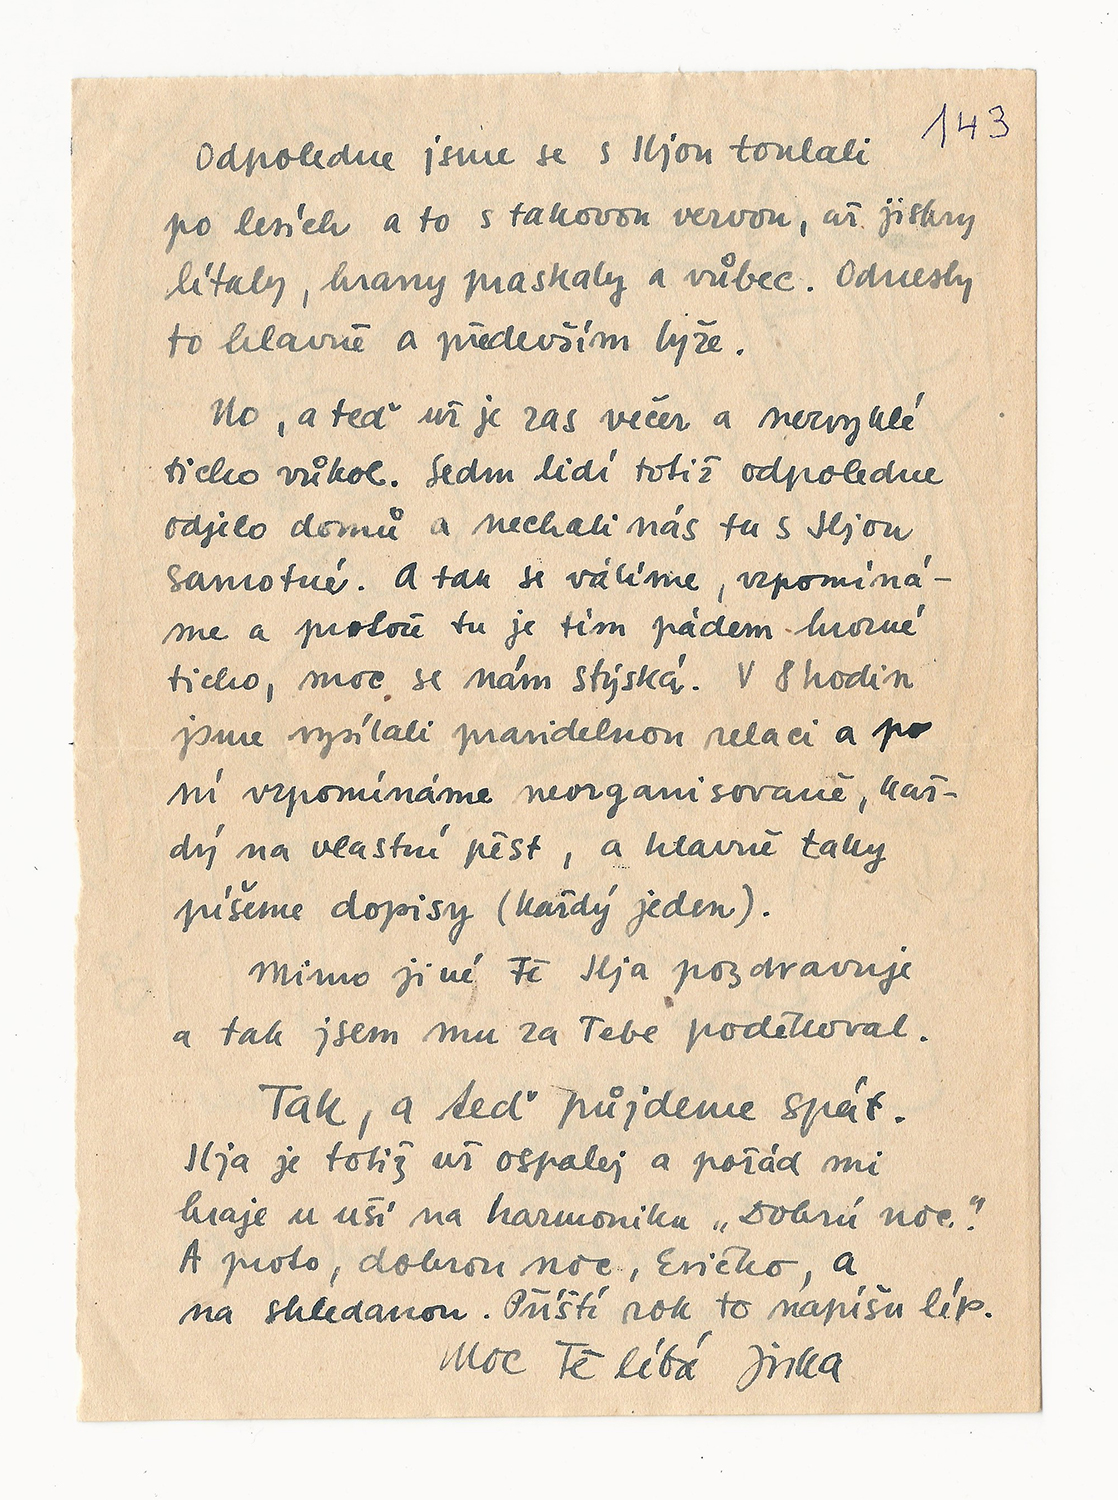 143
Odpoledne jsme se s Iljou toulali
po lesích a to s takovou vervou, až jiskry
lítaly, hrany praskaly a vůbec. Odnesly
to hlavně a především lyže.
No, a teď už je zas večer a nezvyklé
ticho vůkol. Sedm lidí totiž odpoledne
odjelo domů a nechali nás tu s Iljou
samotné. A tak se válíme, vzpomíná-
me a protože tu je tím pádem hrozné
ticho, moc se nám stýská. V 8 hodin
jsme vysílali pravidelnou relaci a po
ní vzpomínáme neorganisovaně, kaž-
dý na vlastní pěst, a hlavně taky
píšeme dopisy (každý jeden).
Mimo jiné Tě Ilja pozdravuje
a tak jsem mu za Tebe poděkoval.
Tak, a teď půjdeme spát.
Ilja je totiž už ospalej a pořád mi
hraje u uší na harmoniku „Dobrú noc."
A proto, dobrou noc, Evičko, a
na shledanou. Příští rok to napíšu líp.
Moc Tě líbá Jirka